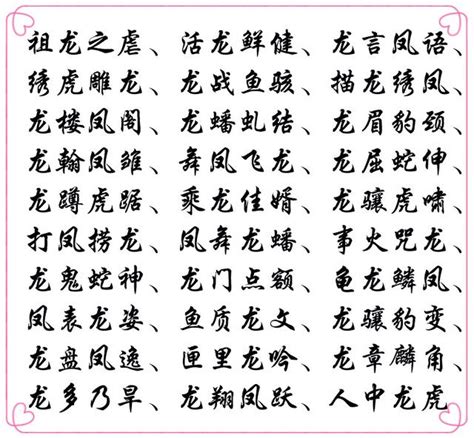 祖龙之虐、活龙鲜健、龙言凤语、
绣虎雕龙、龙战鱼骇、描龙绣凤、
龙楼凤阁、龙蟠虬结、龙眉豹颈、
龙翰凤雏、舞凤飞龙、龙屈蛇伸、
龙蹲虎踞、乘龙佳婿、龙骧虎啸、
打凤捞龙、凤舞龙蟠、事火咒龙、
龙鬼蛇神、龙门点额、龟龙鳞凤、
凤表龙姿、鱼质龙文、龙骧豹变、
龙盘凤逸、匣里龙吟、龙章麟角、
龙多乃旱、龙翔凤跃、人中龙虎